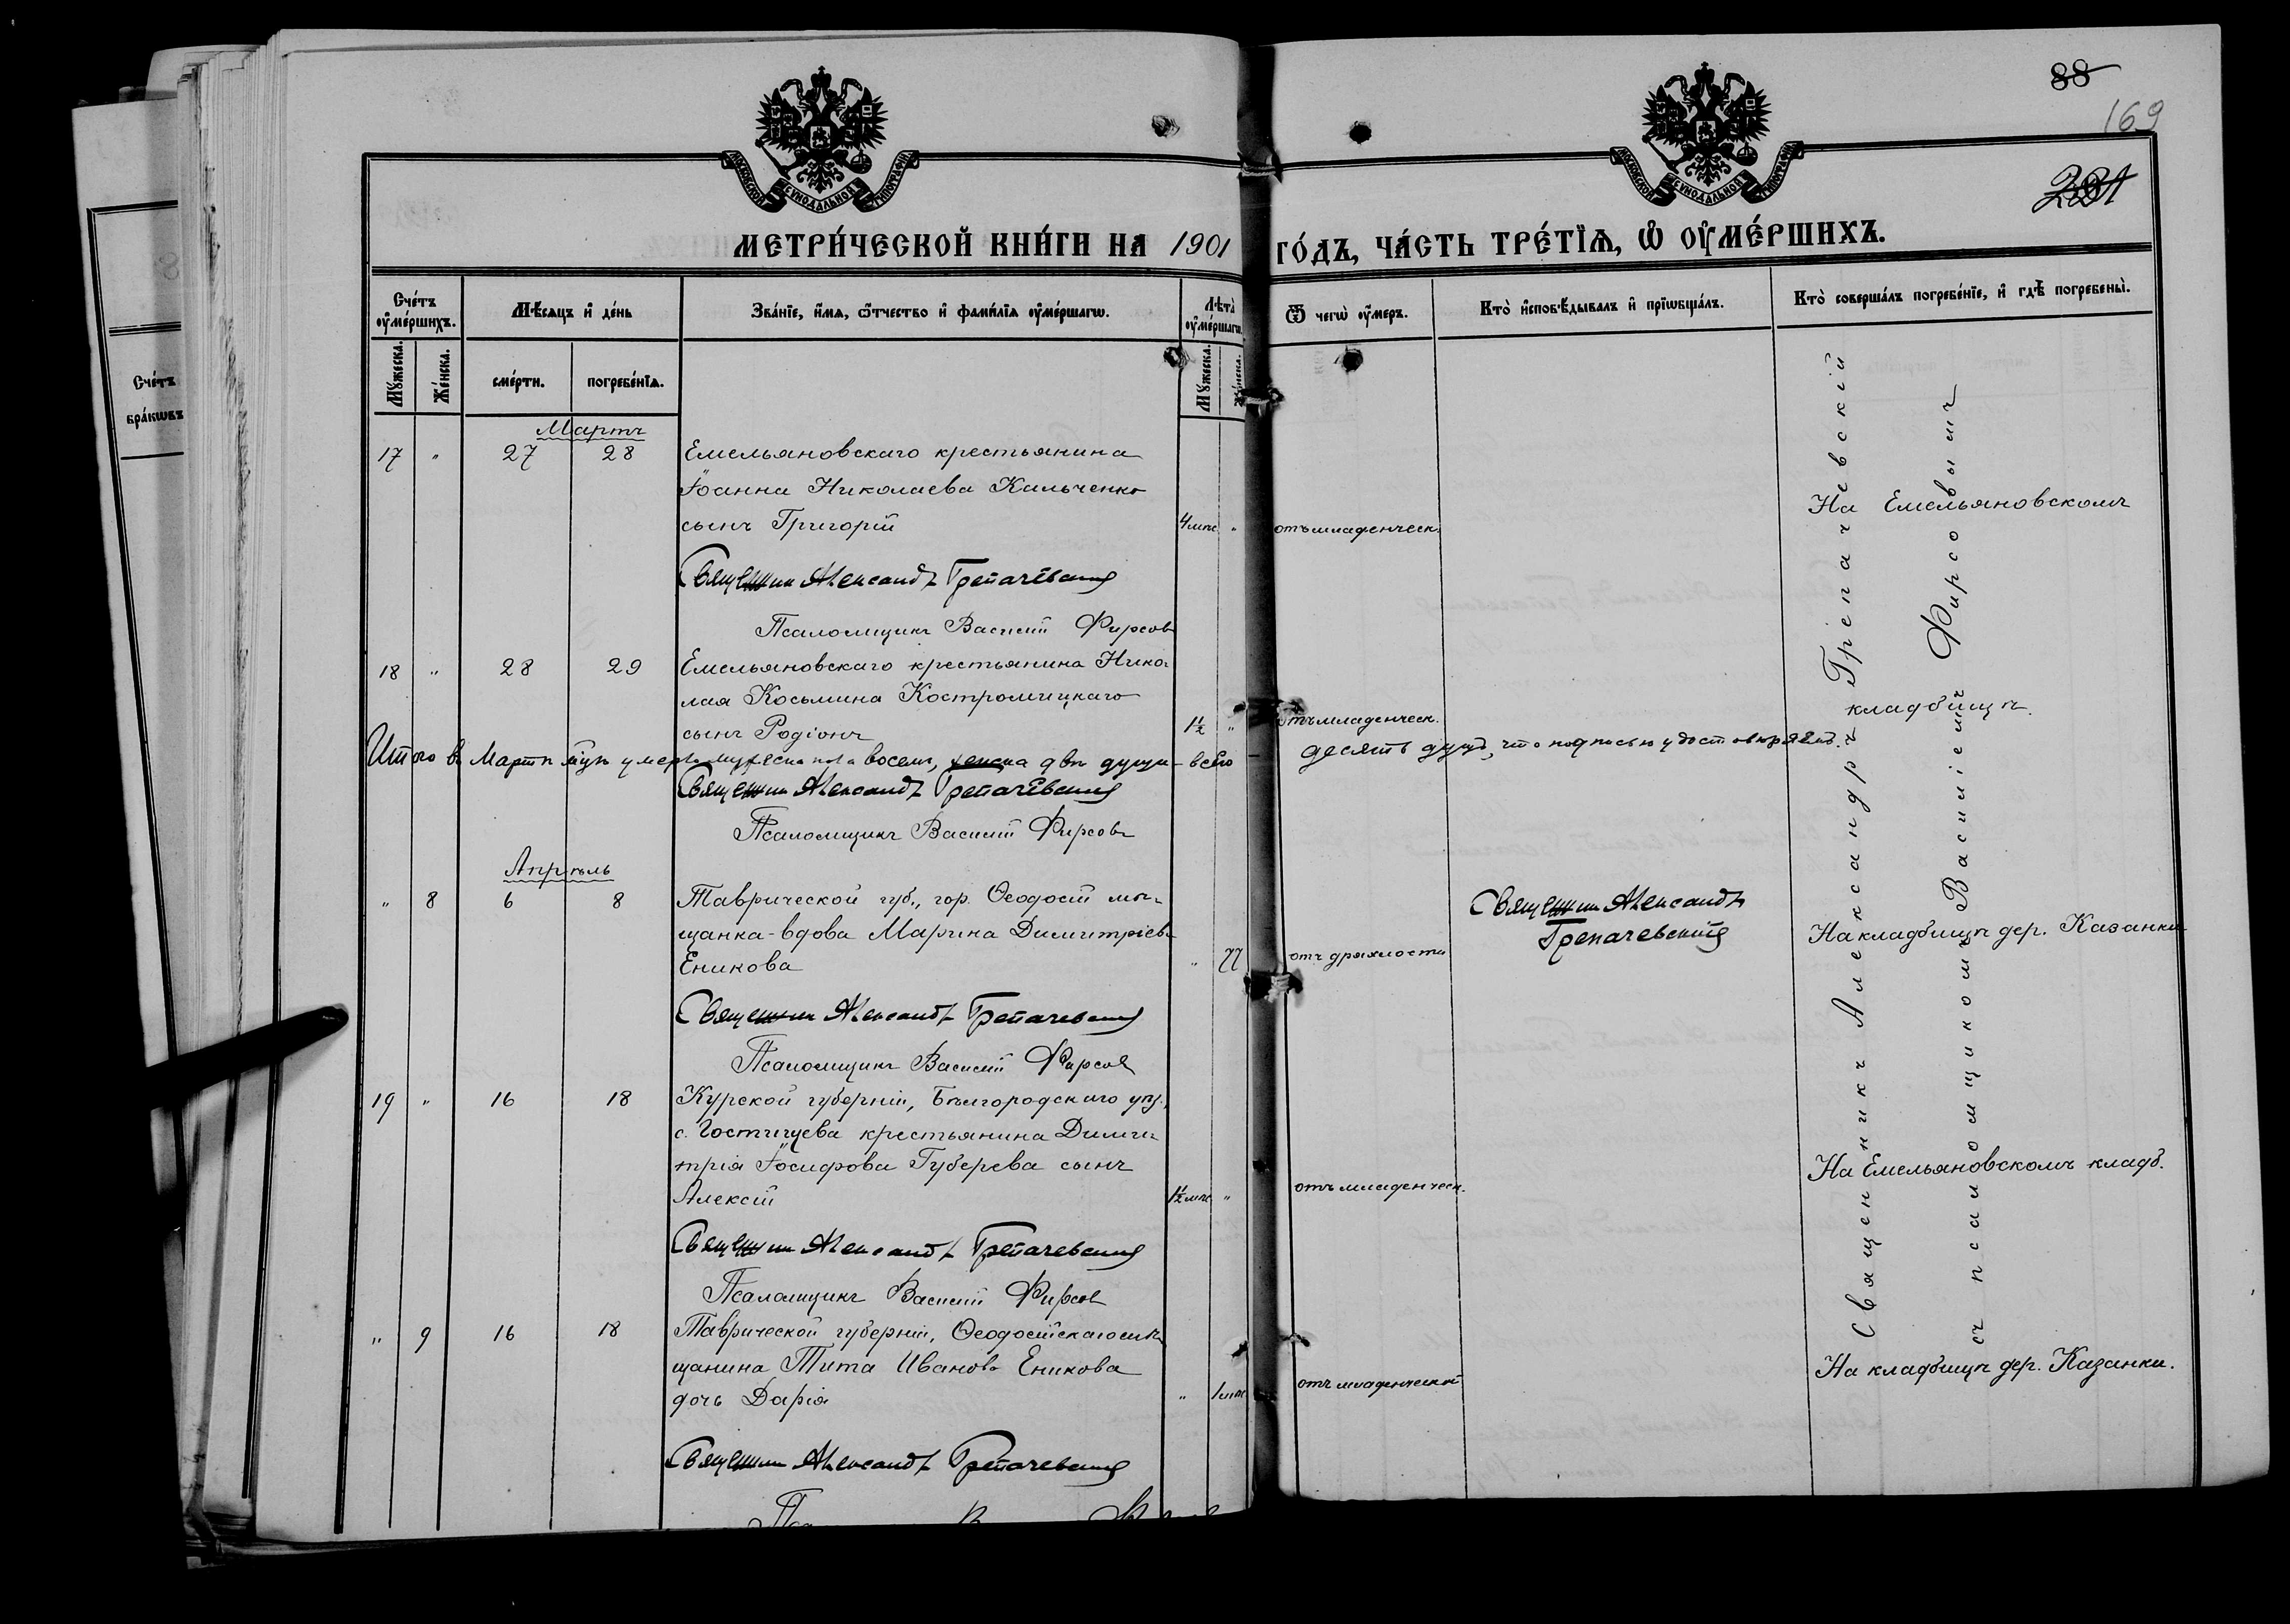 88
169
231
МОСКОВСКОЙ СУНОДАЛЬНОЙ ТИПОГРАФІИ
МОСКОВСКОЙ СУНОДАЛЬНОЙ ТИПОГРАФІИ
МЕТРИ́ЧЕСКОЙ КНИ́ГИ НА 1901 ГО́ДЪ, ЧА́СТЬ ТРЕ́ТЇѦ, Ѡ҆ ОУ҆МЕ́РШИХЪ.
Сче́тъ оу҆ме́ршихъ.
Мѣ́сѧцъ и҆ де́нь
Зва́нїе, и҆́мѧ, ѻ҆́тчество и҆ фами́лїѧ оу҆ме́ршагѡ.
Лѣ́та̀ оу҆ме́ршагѡ.
Ѿ чегѡ̀ оу҆́меръ.
Кто̀ и҆сповѣ́дывалъ и҆ прїѡбща́лъ.
Кто̀ соверша́лъ погребе́нїе, и҆ гдѣ̀ погребены̀.
Сче́тъ
бра́кѡвъ
Мꙋ́жеска.
Же́нска.
сме́рти.
погребе́нїѧ.
Мꙋ́жеска.
Же́нска.
Мартъ
17 " 27 28 Емельяновскаго крестьянина
Іоанна Николаева Кальченко
сынъ Григорій 4 мѣс " отъ младенческ. На Емельяновскомъ
Священникъ Александръ Трепачевскій
Псаломщикъ Василій Фирсовъ
18 " 28 29 Емельяновскаго крестьянина Нико-
лая Косьмина Костромицкаго кладбищѣ.
сынъ Родіонъ 1½ " отъ младенческ.
Итого въ Мартѣ м̃цѣ умерло мужеска пола восемь, женска двѣ души - всего десять душъ, что подписью удостовѣряемъ.
Священникъ Александръ Трепачевскій
Псаломщикъ Василій Фирсовъ
Апрѣль
" 8 6 8 Таврической губ., гор. Ѳеодосіи мѣ-
щанка-вдова Марина Димитріева
Еникова " 77 отъ дряхлости
Священникъ Александръ
Трепачевскій
На кладбищѣ дер. Казанки
Священникъ Александръ Трепачевскій
Псаломщикъ Василій Фирсовъ
19 " 16 18 Курской губерніи, Бѣлгородскаго уѣз.,
с. Гостищева крестьянина Дими-
трія Іосифова Губерева сынъ
Алексій 1½ мѣс " отъ младенческ. На Емельяновскомъ кладб.
Священникъ Александръ Трепачевскій
Псаломщикъ Василій Фирсовъ
" 9 16 18 Таврической губерніи, Ѳеодосійскаго мѣ-
щанина Тита Иванова Еникова
дочь Дарія " 1 мѣс отъ младенческой На кладбищѣ дер. Казанки.
Священникъ Александръ Трепачевскій
Священникъ Александръ Трепачевскій
съ псаломщикомъ Василіемъ Фирсовымъ